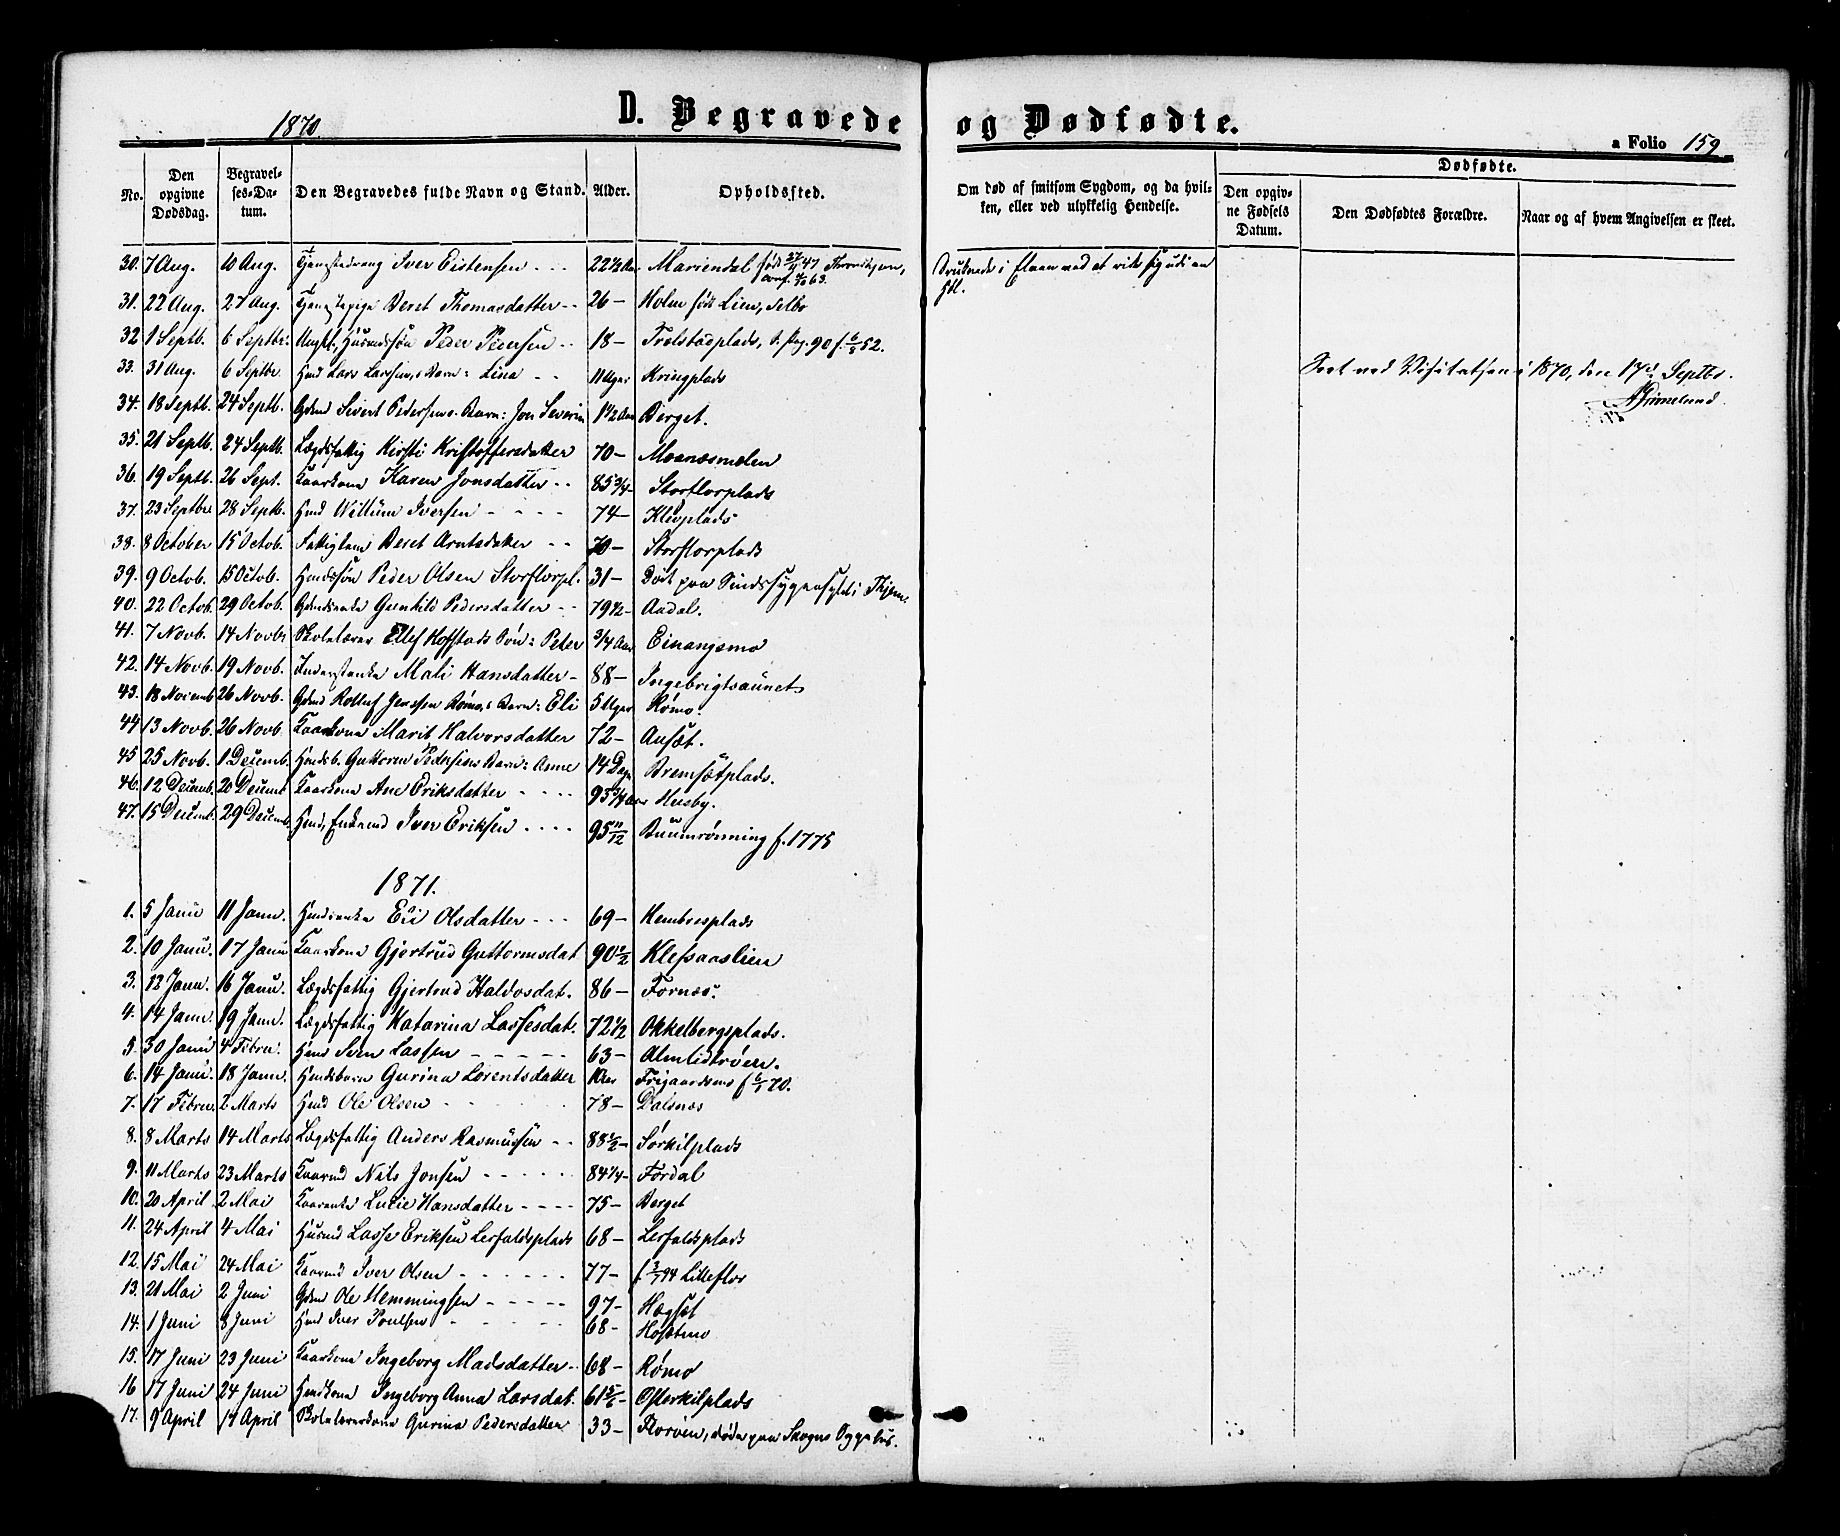 1870.
D. Begravede og Dødfødte.
a Folio 159
No. Den opgivne Dødsdag. Begravelses-Datum. Den Begravedes fulde Navn og Stand. Alder. Opholdssted. Om død af smitsom Sygdom, og da hvilken, eller ved ulykkelig Hendelse. Dødfødte. Den opgivne Fødsels Datum. Den Dødfødtes Forældre. Naar og af hvem Angivelsen er skeet.
30. 7 Aug. 10 Aug. Iver Eistensen 22 1/2 Aar Mariendal
Druknede i Elven ved at ride sig udi en Høl.
31. 22 Aug. 27 Aug. Tjenstepige Beret Thomasdatter 26 - Holm født Lien, Selbo
32 1 Septb. 6 Septbr. Ungk. Husmdssøn Peder Pedersen 18 - Trolstadplads, s. Pag. 90 f. 6/5 52.
33. 31 Aug. 6 Septbr Hmd Lars Larsens Barn: Lina 11 Uger Kringplads
Seet ved Visitatsen i 1870, den 17d Septbr.
AGrimelund
34. 18 Septb. 24 Septb. Gdmd Sivert Pedersens Barn: Jon Severin 1 1/2 Aar Berget.
35. 21 Septb. 24 Septb. Lægdsfattig Kirsti Kristoffersdatter 70 - Moanesmelen
36. 19 Septb. 26 Sept. Kaarkone Karen Jonsdatter 85 3/4 - Storflorplads
37. 23 Septbr 28 Septb. Hmd Willum Iversen 74 - Klevplads
38. 8 October 15 Octob. Fattiglem Beret Arntsdatter 70 - Storflorplads
39. 9 Octob. 15 Octob. Hmdssøn Peder Olsen Storflorpl. 31 - Død paa Sindssygeasylet i Thjem.
40. 22 Octob. 29 Octob. Gdmdsenke Gunhild Pedersdatter 79 1/2 - Aadal.
41. 7 Novb. 14 Novbr Skolelærer Ellef Hofstads Søn: Peter 3/4 Aar Einangsmo
42. 14 Novb. 19 Novb. Inderstenke Mali Hansdatter 88 - Ingebrigtsaunet
43. 18 Novemb 26 Novb. Gdmd Rollef Jenssen Rømo's Barn: Eli 5 Uger Rømo.
44 13 Novb. 26 Novb. Kaarkone Marit Halvorsdatter 72 - Ausæt.
45 25 Novb. 1 Decemb. Hmdsb. Guttorm Pedersens Barn: Anne 14 Dage Bremsetplads.
46. 12 Decemb. 20 Decemb Kaarkone Ane Eriksdatter 93 3/4 Aar Husby.
47. 15 Decemb. 29 Decemb. Hmd, Enkemd Iver Eriksen 95 11/12 Buumrønning f. 1775
1871.
1. 5 Janu 11 Janu. Hmdsenke Eli Olsdatter 69 - Hembresplads
2. 10 Janu. 17 Janu Kaarkone Gjertrud Guttormsdat 90 1/2 Klefsaaslien
3. 12 Janu. 16 Janu. Lægdsfattig Gjertrud Haldosdat. 86 - Fornes.
4. 14 Janu. 19 Janu. Lægdsfattig Katarina Lassesdat. 72 1/2 Okkelbergsplads.
5. 30 Janu 4 Febru. Hmd Sven Lassen 63 - Almlidtrøen.
6. 14 Janu. 18 Janu. Hmdsbarn Gurina Lorentsdatter 1 Aar Frigaardsmo f. 6/1 70.
7. 17 Febru. 2 Marts Hmd Ole Olsen 78 - Dalsnes
8. 8 Marts 14 Marts Lægdsfattig Anders Rasmussen 88 1/2 - Sørkilplads
9. 11 Marts 23 Marts Kaarmd Nils Jonsen 84 1/4 - Fordal
10. 20 April 2 Mai Kaarenke Lucie Hansdatter 75 - Berget
11. 24 April 4 Mai Husmd Lasse Eriksen Lerfaldsplads 68 - Lerfaldsplads
12. 15 Mai 24 Mai Kaarmd Iver Olsen 77 - f. 3/7 94 Lilleflor
13. 21 Mai 2 Juni Gdmd Ole Hemmingsen 97 - Hegset
14. 1 Juni 8 Juni Hmd Iver Poulsen 68 - Hosetmo
15. 17 Juni 23 Juni Kaarkone Ingeborg Madsdatter 68 - Rømo
16 17 Juni 24 Juni Hmdkone Ingeborg Anna Larsdat. 61 5/6 - Østerkilplads
17. 9 April 14 April Skolelærerkone Gurina Pedersdatter 33 - Florøen, døde paa Skogns Sygehus.